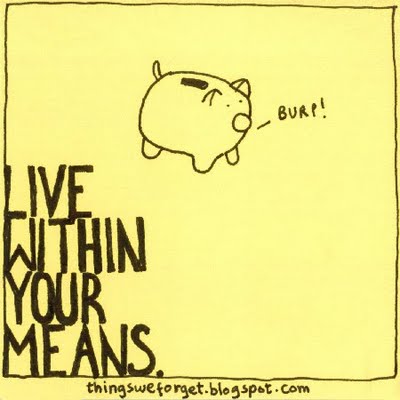 BURP!
LIVE
WITHIN
YOUR
MEANS.
thingsweforget.blogspot.com